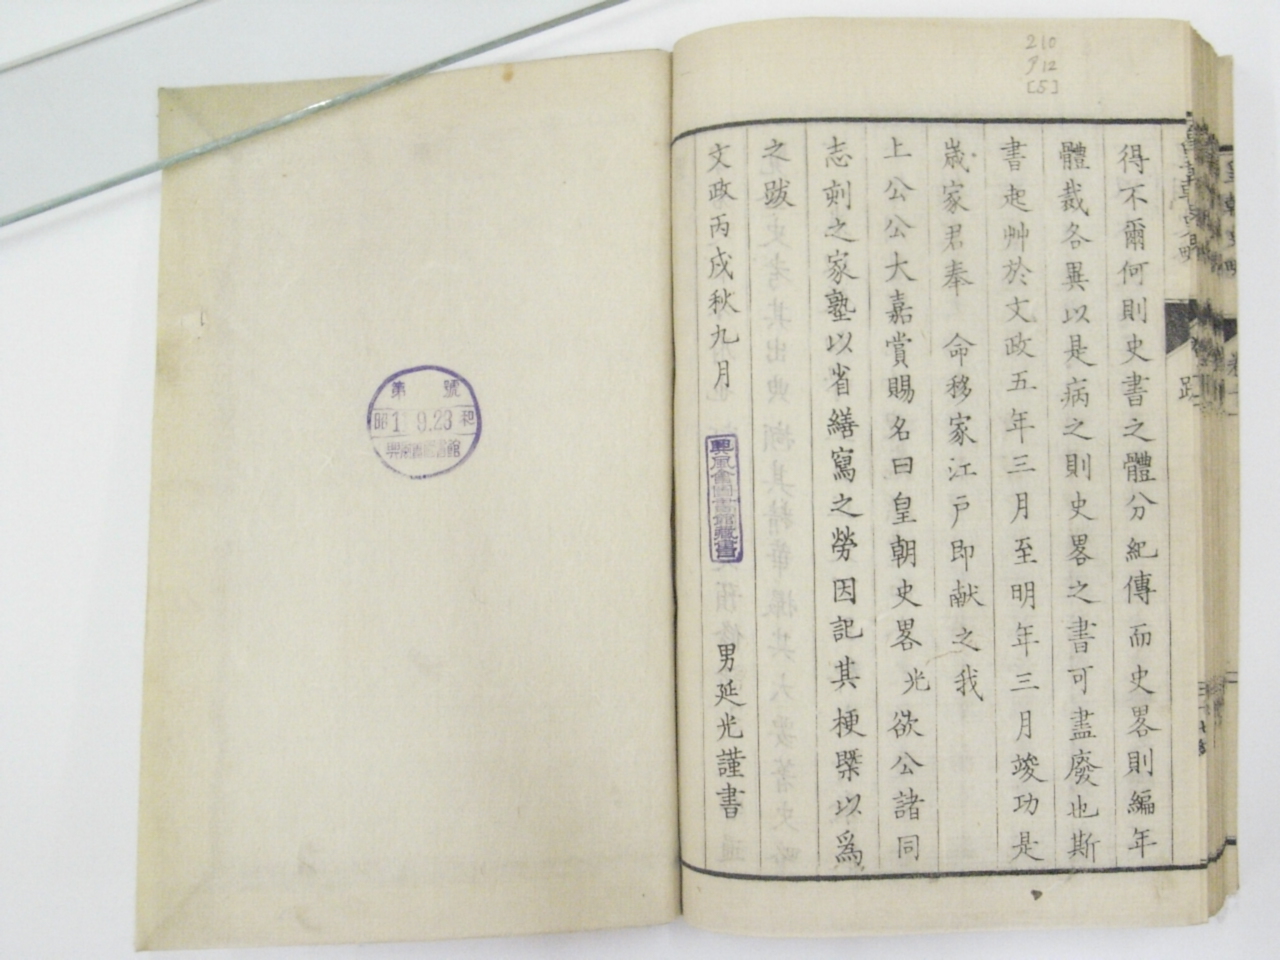 210
ア12
[5]
得不爾何則史書之體分紀傳而史畧則編年
體裁各異以是病之則史畧之書可盡廢也斯
書起艸於文政五年三月至明年三月竣功是
歳家君奉　命移家江戸即献之我
上公公大嘉賞賜名曰皇朝史畧光欲公諸同
志刻之家塾以省繕寫之勞因記其梗槩以爲
之跋
文政丙戌秋九月　男延光謹書
興風會圖書館藏書
跋
第　號
昭1 9.23和
興風會圖書館